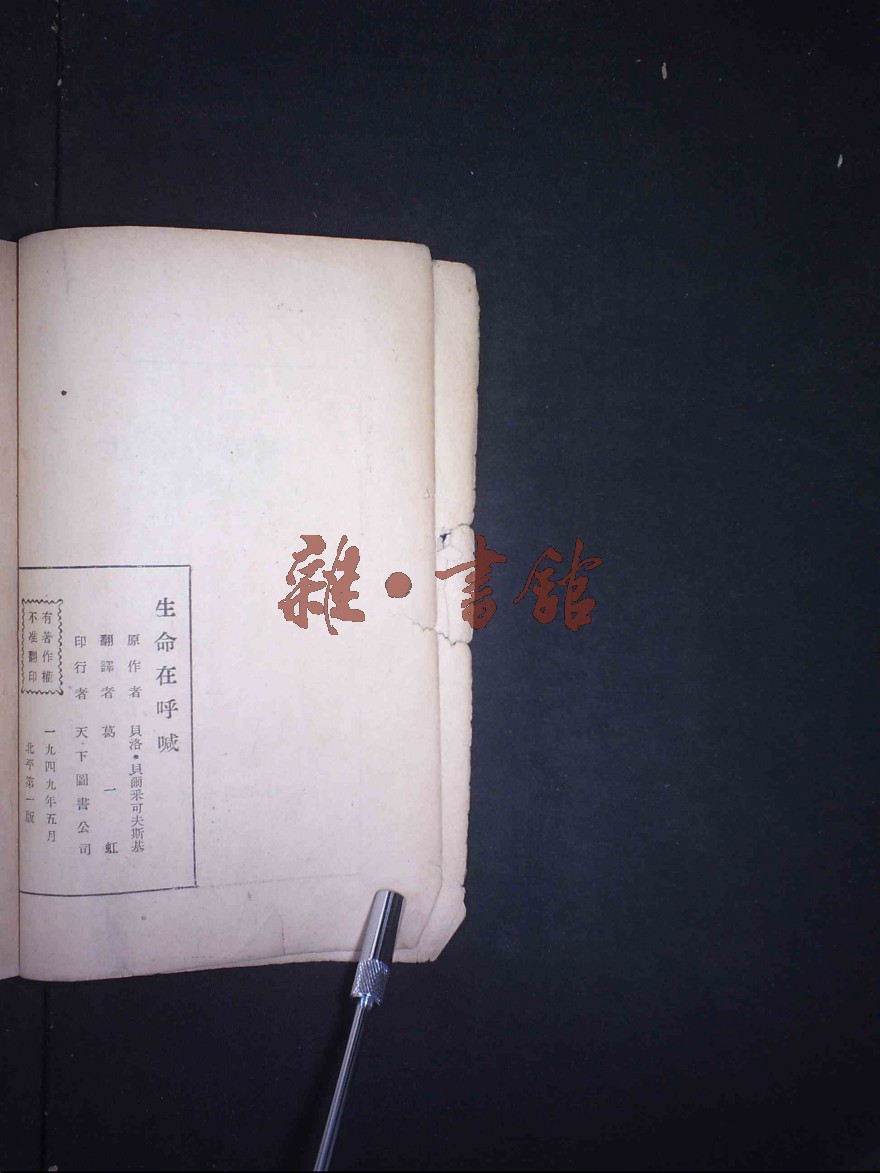 生命在呼喊
原作者 貝洛·貝爾采可夫斯基
翻譯者 葛一虹
印行者 天下圖書公司
一九四九年五月
北平第一版
有著作權
不准翻印
雜·書館